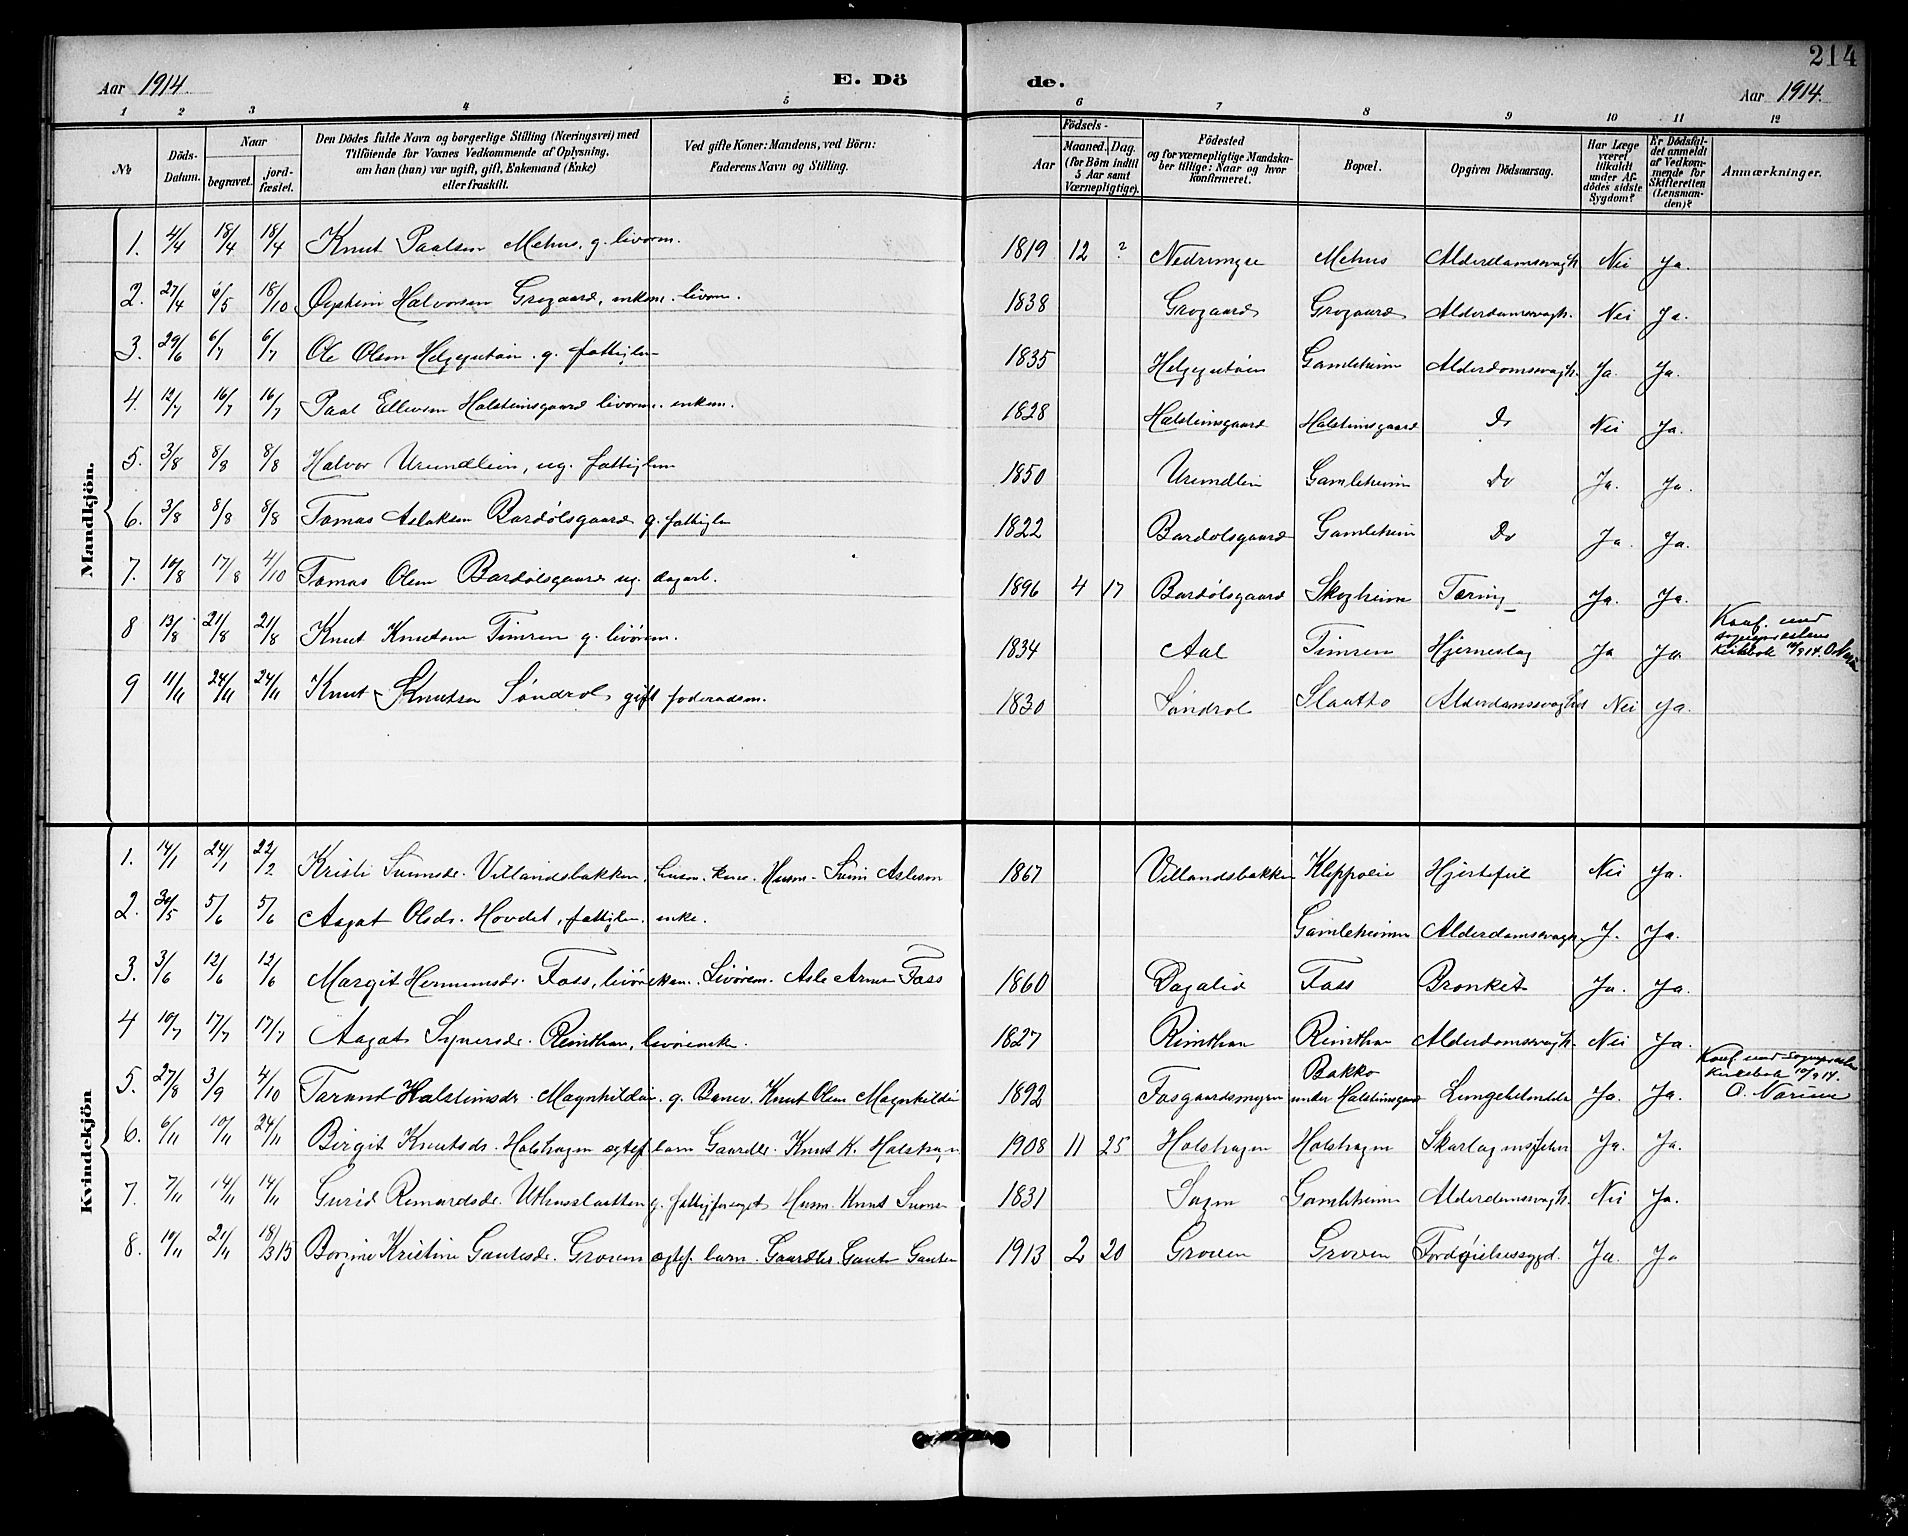 214
Aar 1914. E. Dö de. Aar 1914.
1 2 3 4 5 6 7 8 9 10 11 12
No
Döds-Datum.
Naar
begravet.
jord-fæstet.
Den Dödes fulde Navn og borgerlige Stilling (Næringsvei) med
Tilföiende for Voxnes Vedkommende af Oplysning,
om han (hun) var ugift, gift, Enkemand (Enke)
eller fraskilt.
Ved gifte Koner: Mandens, ved Börn:
Faderens Navn og Stilling.
Födsels-
Aar
Maaned. Dag.
(for Börn indtil
5 Aar samt
Værnepligtige).
Födested
og for værnepligtige Mandska-
ber tillige: Naar og hvor
konfirmeret.
Bopæl.
Opgiven Dödsaarsag.
Har Læge
været
tilkaldt
under Af-
dödes sidste
Sygdom?
Er Dödsfal-
det anmeldt
af Vedkom-
mende for
Skifteretten
(Lensman-
den)?
Anmærkninger.
Mandkjön.
1. 4/4 18/4 18/4 Knut Paalsen Mehus, g. livørm. 1819 12 ? Nedremyre Mehus Alderdomssvagh. Nei Ja.
2. 27/4 6/5 18/10 Øystein Halvorsen Grøgaard, enkem. livørm. 1838 Grøgaard Grøgaard Alderdomssvagh. Nei Ja.
3. 29/6 6/7 6/7 Ole Olsen Helgesetøien g. fattiglem 1835 Helgesetøien Gamleheim Alderdomssvagh. Ja. Ja.
4. 12/7 16/7 16/7 Paal Ellevsen Halsteinsgaard livørm. enkem. 1828 Halsteinsgaard Halsteinsgaard Do Nei Ja.
5. 3/8 8/8 8/8 Halvor Urundlien, ug. fattiglem 1850 Urundlien Gamleheim Do Ja. Ja.
6. 3/8 8/8 8/8 Tomas Aslaksen Bardølsgaard g. fattiglem 1822 Bardølsgaard Gamleheim Do Ja. Ja.
7. 10/8 17/8 4/10 Tomas Olsen Bardølsgaard ug. dagarb. 1896 4 17 Bardølsgaard Skogheim Tæring Ja. Ja.
8 13/8 21/8 21/8 Knut Knutsen Timren g. livørem. 1834 Aal Timren Hjerneslag Ja Ja. Konf. med
sogneprestens
Kirkebok 10/9 14.
9 11/11 24/11 24/11 Knut Knutsen Søndrol gift føderaadsm. 1830 Søndrol Slaatto Alderdomssvaghed Nei Ja.
Kvindekjön
1. 14/1 24/1 22/2 Kristi Sveinsdr. Villandsbakken, husm. kone. Husm. Svein Aslesen 1867 Villandsbakken Kleppoeie Hjertefeil Nei Ja.
2. 30/5 5/6 5/6 Aagot Olsdr. Hovdet, fattiglem. enke. Gamleheimen Alderdomssvagh. J. Ja.
3. 3/6 12/6 12/6 Margit Hermunsdr. Foss, livørekone. Livørem. Asle Arnes. Foss 1860 Dagalid Foss Bronkit Ja. Ja.
4 10/7 17/7 17/7 Aagot Syversdr. Reinthon, livøreenke. 1827 Reinthon Reinthon Alderdomssvagh. Nei Ja.
5. 27/8 3/9 4/10 Torand Halsteinsdr. Magnhildøi. g. Banev. Knut Olsen Magnhildøi 1892 Fosgaardsmyren Bakko
under Halsteinsgaard Lungebetændelse Ja. Ja. Konf. med sogneprestens
kirkebok 10/9 14.
6. 6/11 10/11 24/11 Birgit Knutsdr. Holshagen ægtef. barn Gaardbr. Knut K. Holshagen 1908 11 25 Holshagen Holshagen Skarlagensfeber Ja. Ja.
7. 7/11 14/11 14/11 Gurid Reinardsdr. Uthusslaatten g. fattigforsørget Husm. Knut Svensen 1831 Sagen Gamleheim Alderdomssvagh. Nei Ja.
8. 10/11 21/11 18/3 15 Borgine Kristine Gautesdr. Groven ægtef. barn. Gaardbr. Gaute Gautesen 1913 2 20 Groven Groven Fordøielsessygd. Ja. Ja